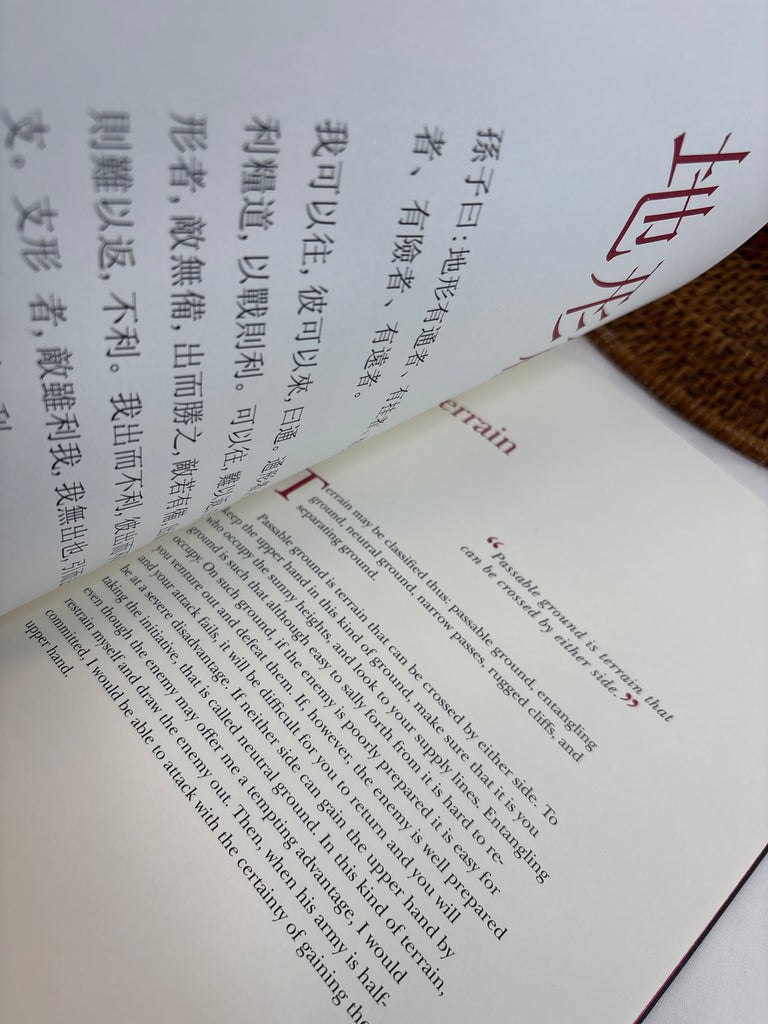 地形
孫子曰：地形有通者、有挂者
者、有險者、有遠者。
我可以往，彼可以來，曰通。通形
利糧道，以戰則利。可以往，難以返
形者，敵無備，出而勝之，敵若有備
則難以返，不利。我出而不利，彼出而
支。支形 者，敵雖利我，我無出也 引而
errain
“Passable ground is terrain that
can be crossed by either side.”
Terrain may be classified thus: passable ground, entangling
ground, neutral ground, narrow passes, rugged cliffs, and
separating ground.
Passable ground is terrain that can be crossed by either side. To
keep the upper hand in this kind of ground, make sure that it is you
who occupy the sunny heights, and look to your supply lines. Entangling
ground is such that although easy to sally forth from it is hard to re-
occupy. On such ground, if the enemy is poorly prepared it is easy for
you venture out and defeat them. If, however, the enemy is well prepared
and your attack fails, it will be difficult for you to return and you will
be at a severe disadvantage. If neither side can gain the upper hand by
taking the initiative, that is called neutral ground. In this kind of terrain,
even though the enemy may offer me a tempting advantage, I would
restrain myself and draw the enemy out. Then, when his army is half-
committed, I would be able to attack with the certainty of gaining the
upper hand.